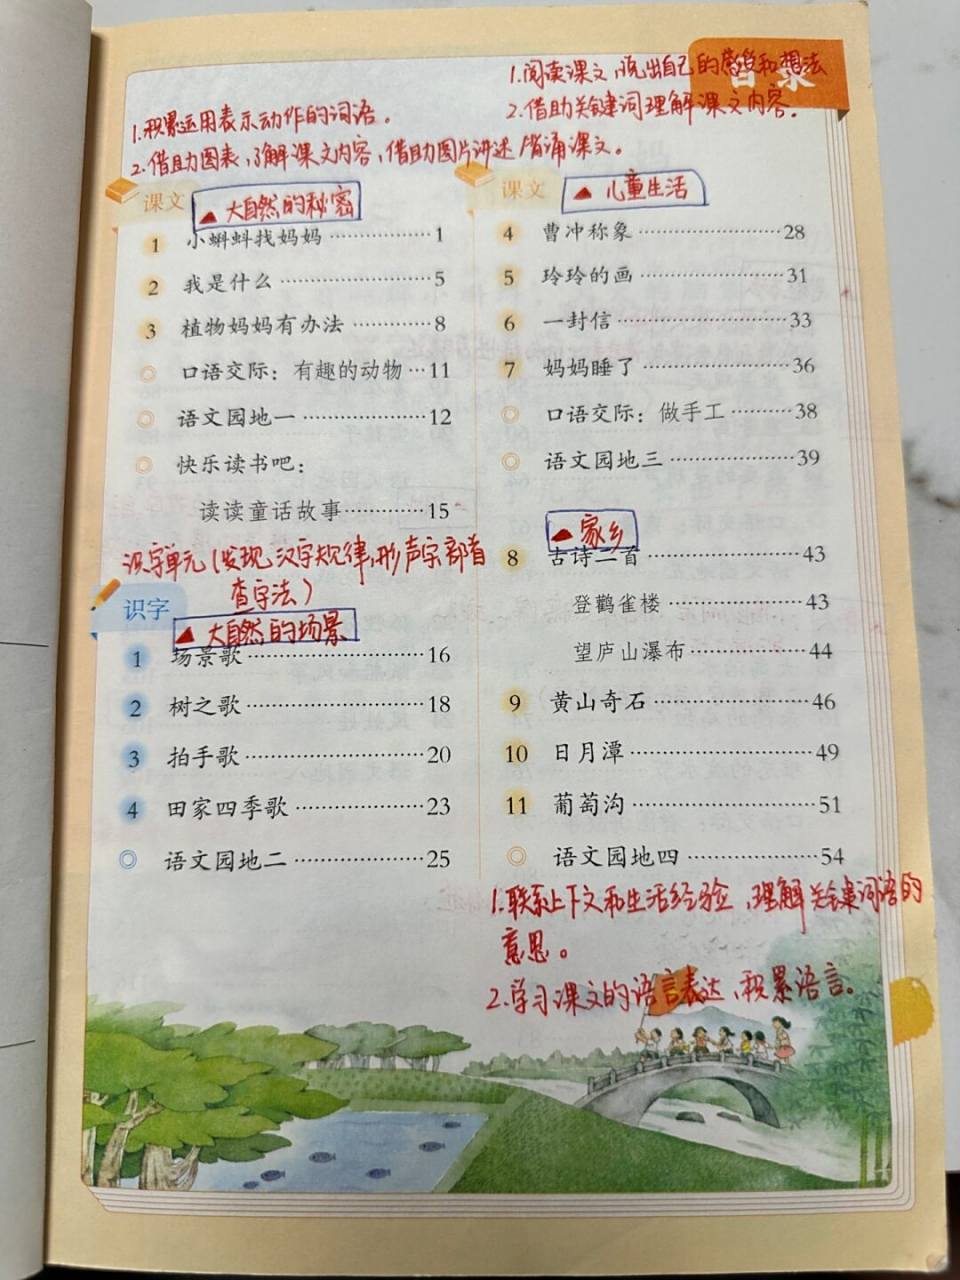 目录
1.阅读课文,说出自己的感受和想法
2.借助关键词理解课文内容.
1.积累运用表示动作的词语。
2.借助图表,了解课文内容,借助图片讲述 背诵课文。
课文 ▲大自然的秘密
1 小蝌蚪找妈妈 ………………1
2 我是什么 ………………5
3 植物妈妈有办法 …………8
口语交际：有趣的动物 …11
语文园地一 ………………12
快乐读书吧：
读读童话故事…………15
识字单元(发现汉字规律,形声字 部首
查字法)
识字 ▲大自然的场景
1 场景歌 ………………16
2 树之歌 ………………18
3 拍手歌 ………………20
4 田家四季歌 ………………23
语文园地二 ………………25
课文 ▲儿童生活
4 曹冲称象 ………………28
5 玲玲的画 ………………31
6 一封信 ………………33
7 妈妈睡了 ………………36
口语交际：做手工 ………38
语文园地三 ………………39
▲家乡
8 古诗二首 ………………43
登鹳雀楼 ………………43
望庐山瀑布 ……………44
9 黄山奇石 ………………46
10 日月潭 ………………49
11 葡萄沟 ………………51
语文园地四 ………………54
1.联系上下文和生活经验,理解关键词语的
意思。
2.学习课文的语言表达,积累语言。